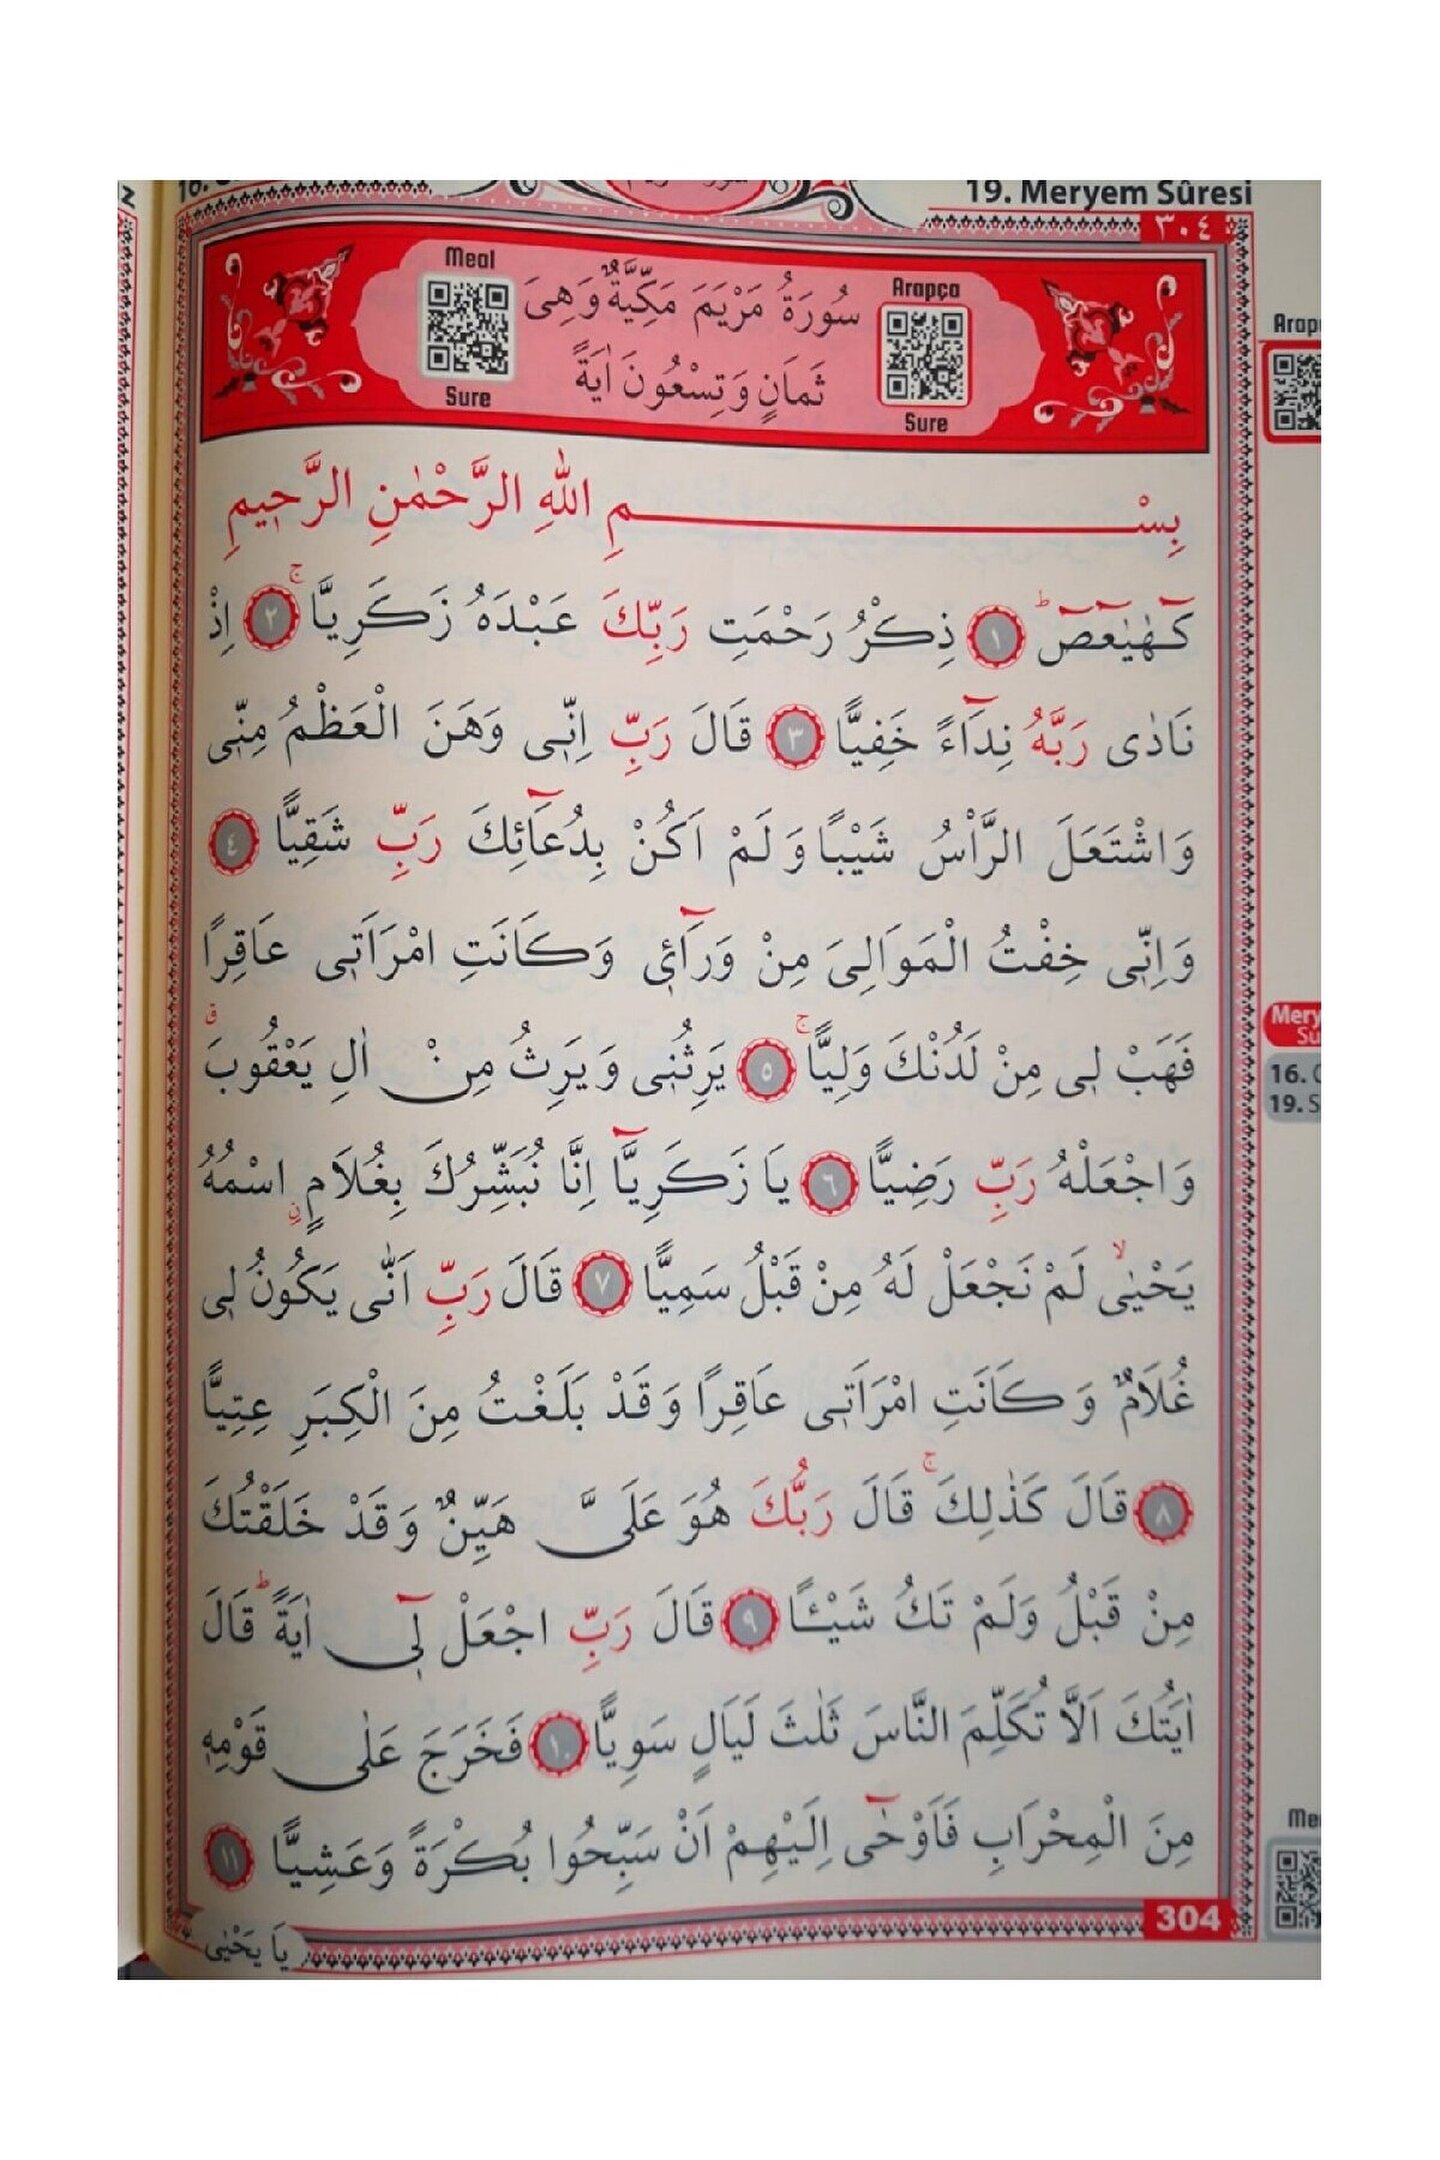 19. Meryem Sûresi
٣٠٤
Meal
Arapça
سُورَةُ مَرْيَمَ مَكِّيَّةٌ وَهِيَ
ثَمَانٍ وَتِسْعُونَ اٰيَةً
Sure
Sure
بِسْمِ اللّٰهِ الرَّحْمٰنِ الرَّحٖيمِ
كٓهٰيٰعٓصٓ ۜ ﴿١﴾ ذِكْرُ رَحْمَتِ رَبِّكَ عَبْدَهُ زَكَرِيَّا ۚ ﴿٢﴾ اِذْ
نَادٰى رَبَّهُ نِدَٓاءً خَفِيًّا ﴿٣﴾ قَالَ رَبِّ اِنّٖى وَهَنَ الْعَظْمُ مِنّٖى
وَاشْتَعَلَ الرَّأْسُ شَيْبًا وَلَمْ اَكُنْ بِدُعَٓائِكَ رَبِّ شَقِيًّا ﴿٤﴾
وَاِنّٖى خِفْتُ الْمَوَالِىَ مِنْ وَرَٓائٖى وَكَانَتِ امْرَاَتٖى عَاقِرًا
فَهَبْ لٖى مِنْ لَدُنْكَ وَلِيًّا ۚ ﴿٥﴾ يَرِثُنٖى وَيَرِثُ مِنْ اٰلِ يَعْقُوبَ ۗ
وَاجْعَلْهُ رَبِّ رَضِيًّا ﴿٦﴾ يَا زَكَرِيَّٓا اِنَّا نُبَشِّرُكَ بِغُلَامٍ اسْمُهُ
يَحْيٰى ۙ لَمْ نَجْعَلْ لَهُ مِنْ قَبْلُ سَمِيًّا ﴿٧﴾ قَالَ رَبِّ اَنّٰى يَكُونُ لٖى
غُلَامٌ وَكَانَتِ امْرَاَتٖى عَاقِرًا وَقَدْ بَلَغْتُ مِنَ الْكِبَرِ عِتِيًّا
﴿٨﴾ قَالَ كَذٰلِكَ ۚ قَالَ رَبُّكَ هُوَ عَلَىَّ هَيِّنٌ وَقَدْ خَلَقْتُكَ
مِنْ قَبْلُ وَلَمْ تَكُ شَيْـًٔا ﴿٩﴾ قَالَ رَبِّ اجْعَلْ لٖٓى اٰيَةً ۜ قَالَ
اٰيَتُكَ اَلَّا تُكَلِّمَ النَّاسَ ثَلٰثَ لَيَالٍ سَوِيًّا ﴿١٠﴾ فَخَرَجَ عَلٰى قَوْمِهٖ
مِنَ الْمِحْرَابِ فَاَوْحٰٓى اِلَيْهِمْ اَنْ سَبِّحُوا بُكْرَةً وَعَشِيًّا ﴿١١﴾
304
يَا يَحْيٰى